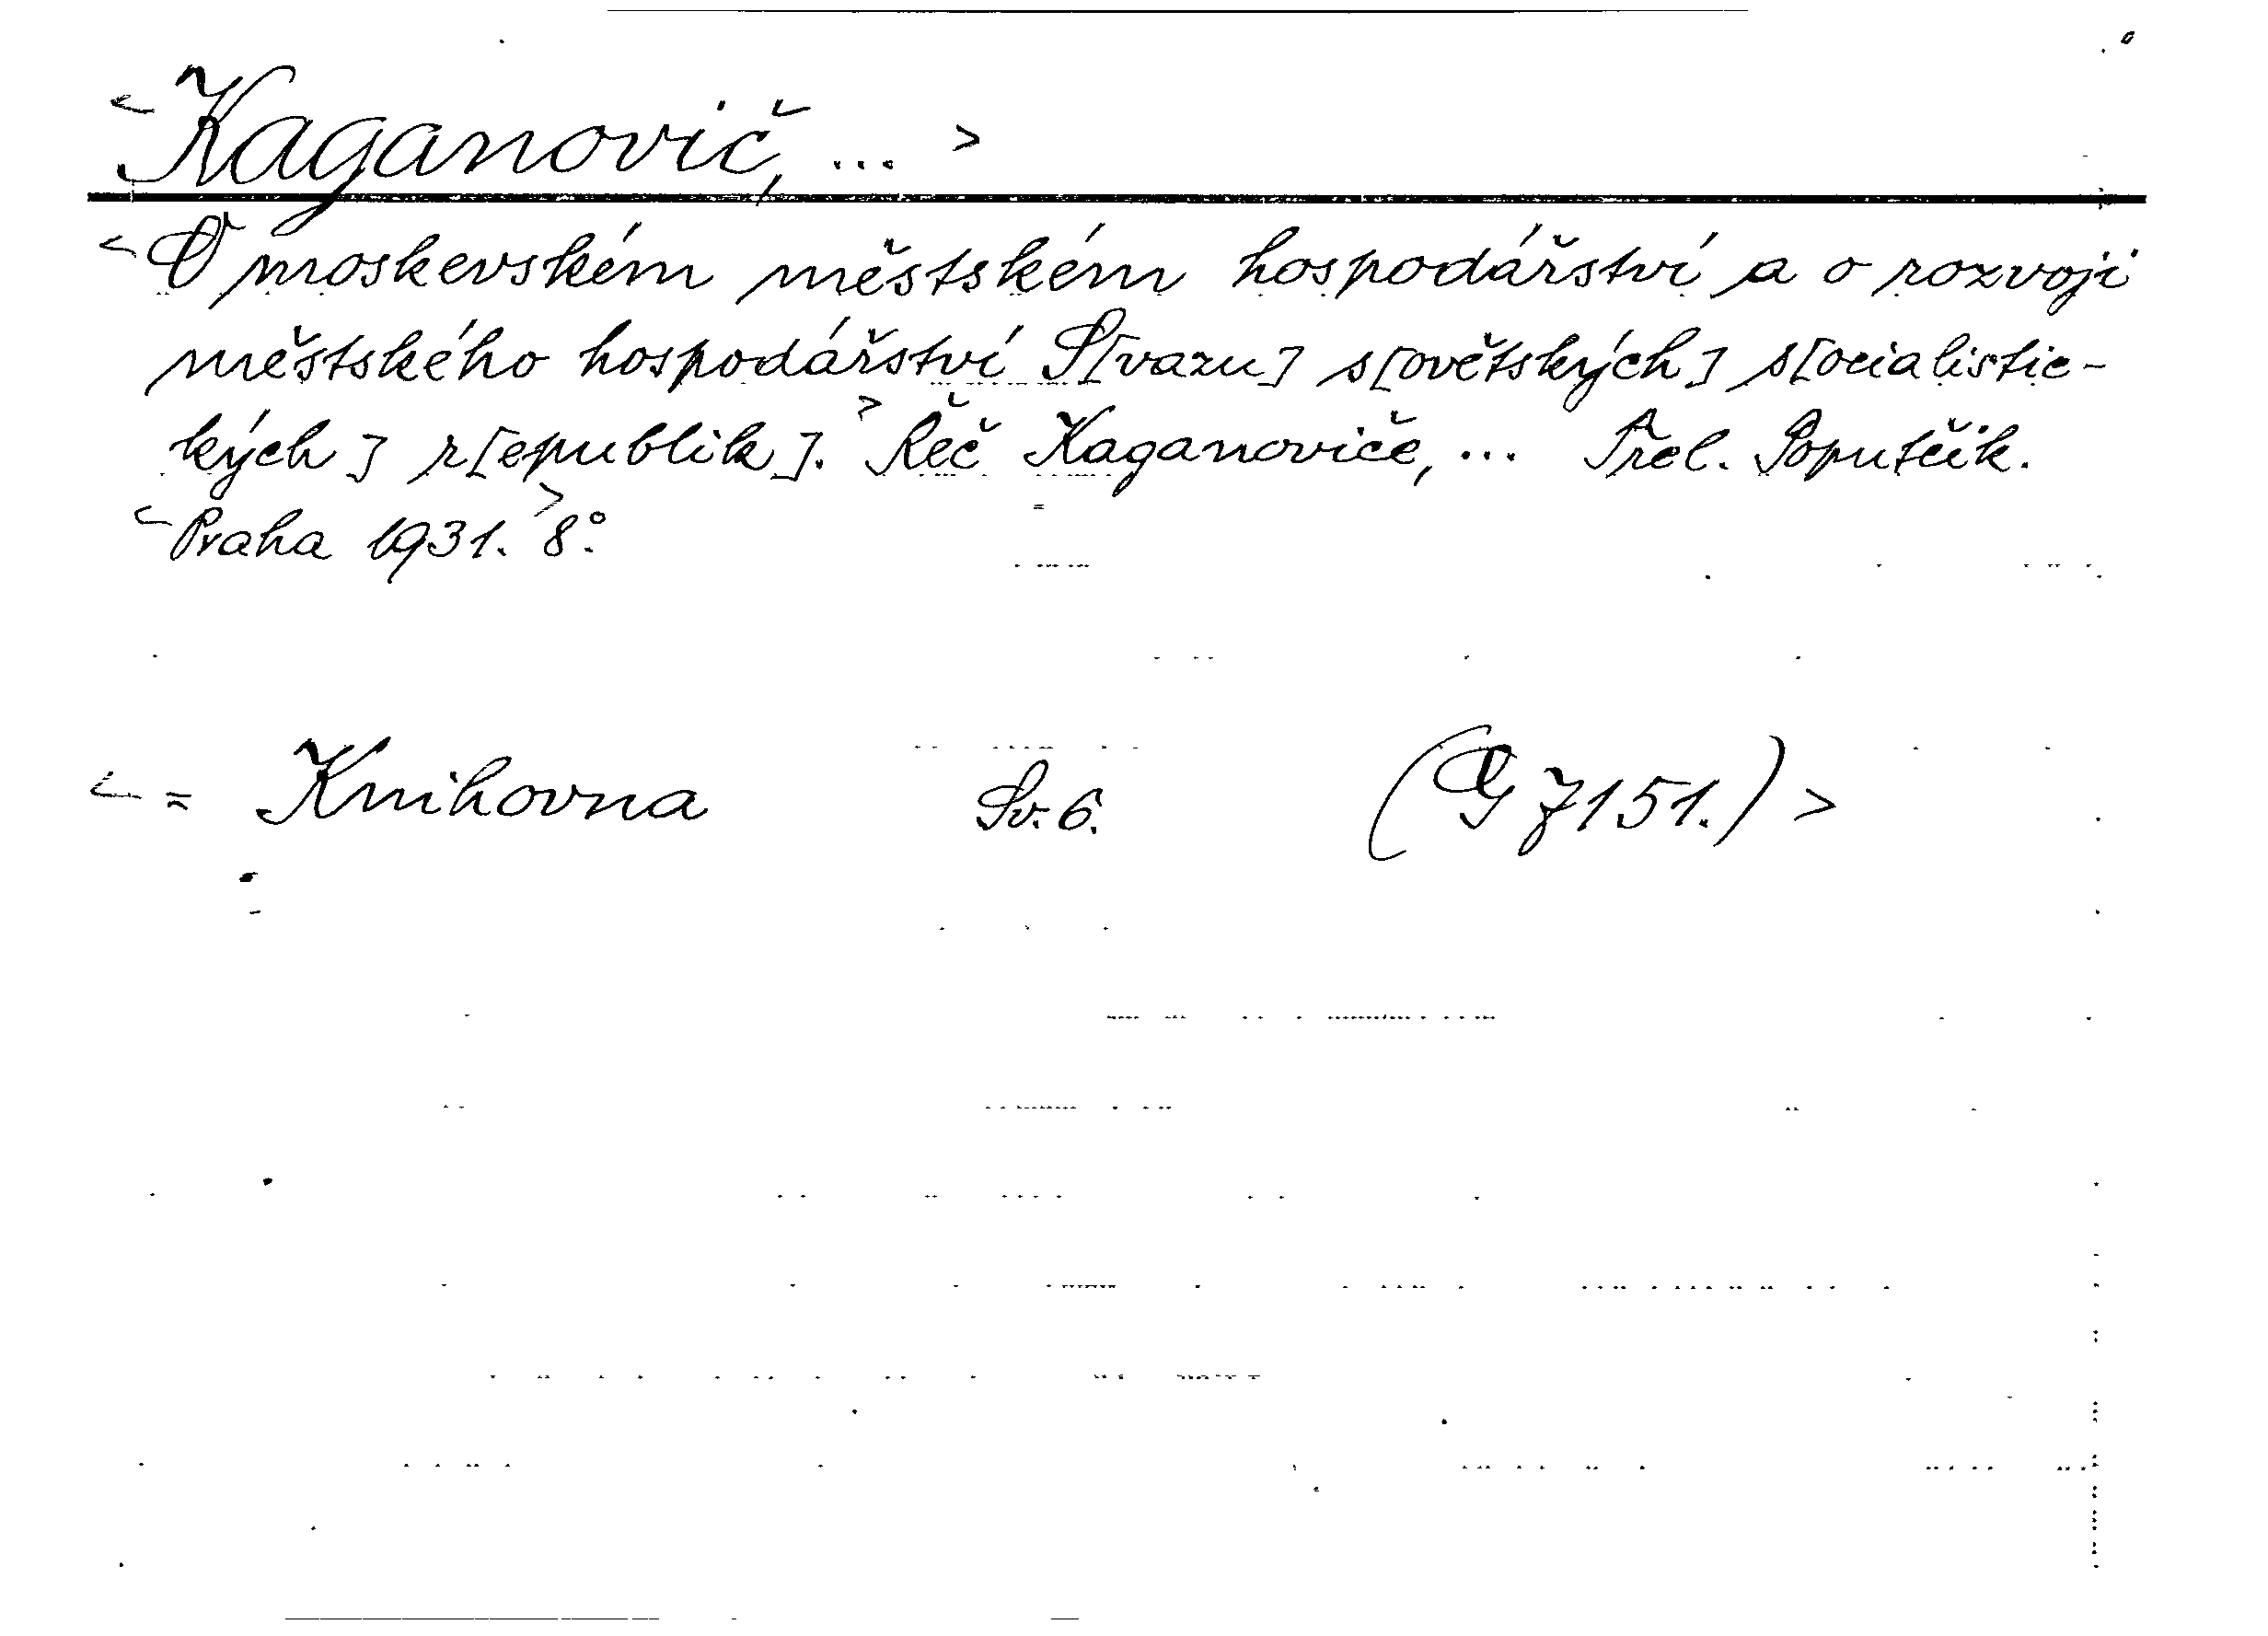 <Kaganovič, ... >
<O moskevském městském hospodářství a o rozvoji
městského hospodářství S[vazu] s[ovětských] s[ocialistic-
kých] r[epublik].> Řeč Kaganoviče, ... Přel. Poputčik.
<Praha 1931.> 8°.
< = Knihovna Sv. 6. (G 7151.) >